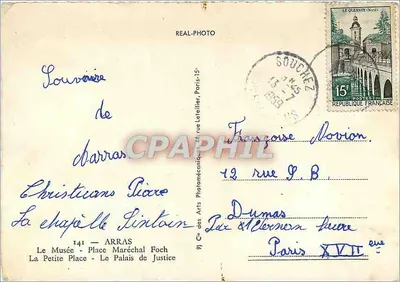 REAL-PHOTO
LE QUESNOY (Nord)
15F
POSTES
REPUBLIQUE FRANÇAISE
SOUCHEZ
13-7
1959
Souvenir
de
d'arras
Christiane Pierre
La chapelle Sintain
Françoise Novion
12 rue J. B.
Dumas
Paris XVII eme
CPAPHIL
9) Cie des Arts Photomécaniques, rue Letellier, Paris-15e
141 - ARRAS
Le Musée - Place Maréchal Foch
La Petite Place - Le Palais de Justice